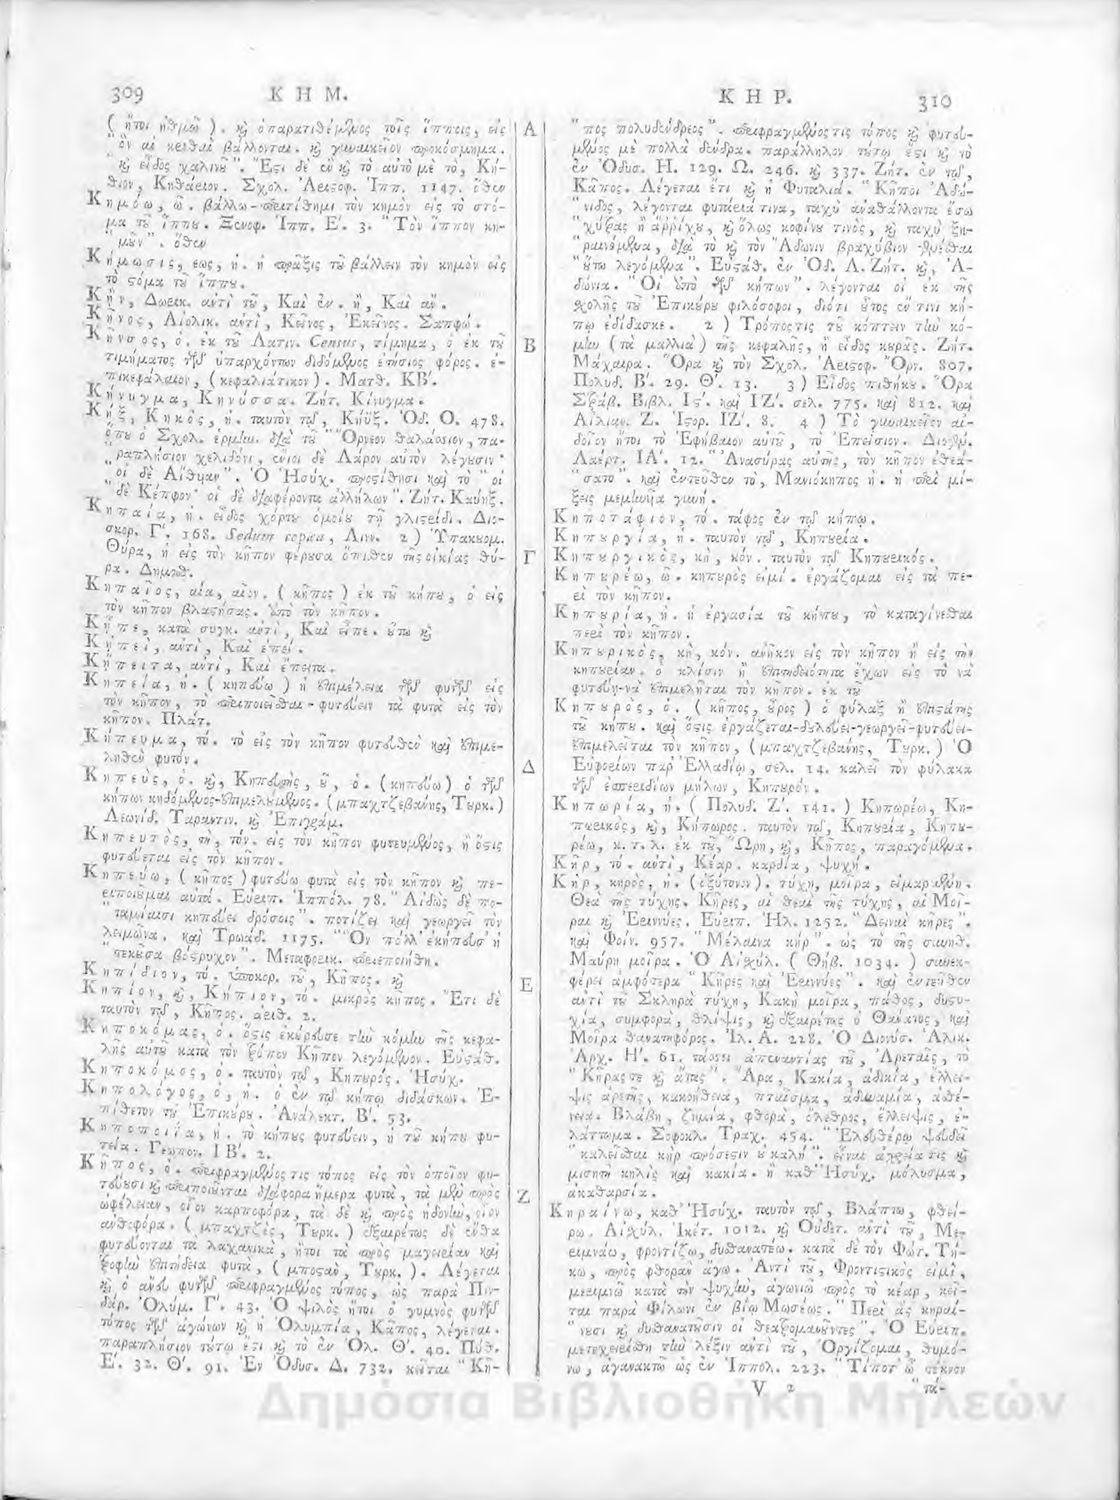 309 ΚΗΜ.
( ἤτοι ἠθμῷ ). καὶ ὁ παρατιθέμενος τοῖς ἵπποις, εἰς
" ὃν αἱ κριθαὶ βάλλονται. καὶ γυναικεῖον προκόσμημα.
" καὶ εἶδος χαλινοῦ". Ἔστι δὲ ἐν καὶ τὸ αὐτὸ μὲ τὸ, Κή-
θιον, Κηθάριον. Σχολ. Ἀριστοφ. Ἱππ. 1147. ὅθεν
Κημόω, ῶ. βάλλω-περιτίθημι τὸν κημὸν εἰς τὸ στό-
μα τοῦ ἵππου. Ξενοφ. Ἱππ. Ε. 3. "Τὸν ἵππον κη-
μοῦν". ὅθεν
Κήμωσις, εως, ἡ. ἡ πράξις τοῦ βάλλειν τὸν κημὸν εἰς
τὸ στόμα τοῦ ἵππου.
Κἠν, Δωρικ. ἀντὶ τοῦ, Καὶ ἐν. ἢ, Καὶ ἄν.
Κῆνος, Αἰολικ. ἀντὶ, Κεῖνος, Ἐκεῖνος. Σαπφώ.
Κῆνσος, ὁ. ἐκ τοῦ Λατιν. Census, τίμημα, ὁ ἐκ τοῦ
τιμήματος τῶν ὑπαρχόντων διδόμενος ἐτήσιος φόρος. ἐ-
πικεφάλαιον, (κεφαλιάτικον). Ματθ. ΚΒ'.
Κήνυγμα, Κηνύσσα. Ζήτ. Κίνυγμα.
Κήξ, Κηκὸς, ἡ. ταυτὸν τῷ, Κήϋξ. Ὀδ. Ο. 478.
ὅπου ὁ Σχολ. ἑρμην. διὰ τοῦ "Ὄρνεον θαλάσσιον, πα-
"ραπλήσιον χελιδόνι, ἔνιοι δὲ Λάρον αὐτὸν λέγουσιν·
"οἱ δὲ Αἴθυαν". Ὁ Ἡσύχ. προστίθησι καὶ τὸ "οἱ
"δὲ Κέπφον· οἱ δὲ διαφέροντα ἀλλήλων". Ζήτ. Καύηξ.
Κηπαία, ἡ. εἶδος χόρτου ὁμοίου τῇ γλιστρίδι. Διο-
σκορ. Γ'. 168. Sedum cepæa, Λινν. 2) Ὑπακουομ.
Θύρα, ἡ εἰς τὸν κῆπον φέρουσα ὄπιθεν τῆς οἰκίας θύ-
ρα. Δημοσθ.
Κηπαῖος, αία, αῖον. ( κῆπος ) ἐκ τοῦ κήπου, ὁ εἰς
τὸν κῆπον βλαστήσας. ἀπὸ τὸν κῆπον.
Κἦπε, κατὰ συγκ. ἀντὶ, Καὶ εἶπε. οὕτω καὶ
Κἠπεί, ἀντὶ, Καὶ ἐπεί.
Κἤπειτα, ἀντὶ, Καὶ ἔπειτα.
Κηπεία, ἡ. ( κηπεύω ) ἡ ἐπιμέλεια τῶν φυτῶν εἰς
τὸν κῆπον, τὸ περιποιεῖσθαι-φυτεύειν τὰ φυτὰ εἰς τὸν
κῆπον. Πλάτ.
Κήπευμα, τό. τὸ εἰς τὸν κῆπον φυτευθὲν καὶ ἐπιμε-
ληθὲν φυτόν.
Κηπεὺς, ὁ. καὶ, Κηπευτὴς, οῦ, ὁ. (κηπεύω) ὁ τῶν
κήπων κηδόμενος-ἐπιμελούμενος. (μπαχτζεβάνης, Τουρκ.)
Λεωνίδ. Ταραντιν. καὶ Ἐπιγραμ.
Κηπευτὸς, τὴ, τόν. εἰς τὸν κῆπον φυτευμένος, ἢ ὅστις
φυτεύεται εἰς τὸν κῆπον.
Κηπεύω, ( κῆπος ) φυτεύω φυτὰ εἰς τὸν κῆπον καὶ πε-
ριποιοῦμαι αὐτά. Εὐριπ. Ἱππόλ. 78. "Αἰδὼς δὲ πο-
"ταμίαισι κηπεύει δρόσοις". ποτίζει καὶ γεωργεῖ τὸν
λειμῶνα. καὶ Τρωάδ. 1175. "Ὃν πόλλ' ἐκήπευσ' ἡ
"τεκοῦσα βόστρυχον". Μεταφορικ. περιεποιήθη.
Κηπίδιον, τό. ὑποκορ. τοῦ, Κῆπος. καὶ
Κηπίον, καὶ, Κήπιον, τό. μικρὸς κῆπος. Ἔτι δὲ
ταυτὸν τῷ, Κῆπος. ἀριθ. 2.
Κηποκόμας, ὁ. ὅστις ἐκούρευσε τὴν κόμην τῆς κεφα-
λῆς αὐτοῦ κατὰ τὸν τρόπον Κῆπον λεγόμενον. Εὐσταθ.
Κηποκόμος, ὁ. ταυτὸν τῷ, Κηπουρός. Ἡσύχ.
Κηπολόγος, ὁ, ἡ. ὁ ἐν τῷ κήπῳ διδάσκων. Ἐ-
πίθετον τοῦ Ἐπικούρου. Ἀνάλεκτ. Β'. 53.
Κηποποιΐα, ἡ. τὸ κήπους φυτεύειν, ἡ τοῦ κήπου φυ-
τεία. Γεωπον. ΙΒ'. 2.
Κῆπος, ὁ. περιφραγμένος τις τόπος εἰς τὸν ὁποῖον φυ-
τεύουσι καὶ περιποιοῦνται διάφορα ἥμερα φυτὰ, τὰ μὲν πρὸς
ὠφέλειαν, οἷον καρποφόρα, τὰ δὲ καὶ πρὸς ἡδονὴν, οἷον
ἀνθοφόρα. ( μπαχτζὲς, Τουρκ. ) ἐξαιρέτως δὲ ἔνθα
φυτεύονται τὰ λαχανικὰ, ἤτοι τὰ πρὸς μαγειρείαν καὶ
τροφὴν ἐπιτήδεια φυτὰ, ( μποστὰν, Τουρκ. ). Λέγεται
καὶ ὁ ἄνευ φυτῶν περιφραγμένος τόπος, ὡς παρὰ Πιν-
δάρ. Ὀλύμ. Γ'. 43. Ὁ ψιλὸς ἤτοι ὁ γυμνὸς φυτῶν
τόπος τῶν ἀγώνων καὶ ἡ Ὀλυμπία, Κᾶπος, λέγεται.
παραπλήσιον τούτῳ ἔστι καὶ τὸ ἐν Ὀλ. Θ'. 40. Πύθ.
Ε'. 32. Θ'. 91. Ἐν Ὀδυσ. Δ. 732. κεῖται "Κῆ-
Α
Β
Γ
Δ
Ε
Ζ
ΚΗΡ. 310
"πος πολυδένδρεος". περιφραγμένος τις τόπος καὶ φυτευ-
μένος μὲ πολλὰ δένδρα. παράλληλον τούτῳ ἔστι καὶ τὸ
ἐν Ὀδυσ. Η. 129. Ω. 246. καὶ 337. Ζήτ. ἐν τῷ,
Κᾶπος. Λέγεται ἔτι καὶ ἡ Φυταλιά. "Κῆποι Ἀδώ-
"νιδος, λέγονται φυτάριά τινα, ταχὺ ἀναθάλλοντα ἔσω
"χύτρας ἢ ἀρρίχου, καὶ ὅλως κοφίνου τινὸς, καὶ ταχὺ ξη-
"ραινόμενα, διὰ τὸ καὶ τὸν Ἄδωνιν βραχύβιον γενέσθαι
"οὕτω λεγόμενα". Εὐσταθ. ἐν Ὀδ. Λ. Ζήτ. καὶ, Ἀ-
δώνια. "Οἱ ἀπὸ τῶν κήπων". λέγονται οἱ ἐκ τῆς
σχολῆς τοῦ Ἐπικούρου φιλόσοφοι, διότι οὗτος ἔν τινι κή-
πῳ ἐδίδασκε. 2 ) Τρόπος τις τοῦ κόπτειν τὴν κό-
μην (τὰ μαλλιὰ) τῆς κεφαλῆς, ἢ εἶδος κουρᾶς. Ζήτ.
Μάχαιρα. Ὅρα καὶ τὸν Σχολ. Ἀριστοφ. Ὄρν. 807.
Πολυδ. Β'. 29. Θ'. 13. 3 ) Εἶδος πιθήκου. Ὅρα
Στράβ. Βιβλ. Ις'. καὶ ΙΖ'. σελ. 775. καὶ 812. καὶ
Αἰλιαν. Ζ. Ἱστορ. ΙΖ'. 8. 4 ) Τὸ γυναικεῖον αἰ-
δοῖον ἤτοι τὸ Ἐφήβαιον αὐτοῦ, τὸ Ἐπείσιον. Διογέν.
Λαέρτ. ΙΑ'. 12. "Ἀνασύρας αὐτῆς, τὸν κῆπον ἐθεά-
"σατο". καὶ ἐντεῦθεν τὸ, Μανιόκηπος ἡ. ἡ περὶ μί-
ξεις μεμηνυῖα γυνή.
Κηποτάφιον, τό. τάφος ἐν τῷ κήπῳ.
Κηπουργία, ἡ. ταυτὸν τῷ, Κηπουρία.
Κηπουργικὸς, κὴ, κόν. ταυτὸν τῷ Κηπουρικός.
Κηπουρέω, ῶ. κηπουρός εἰμι. ἐργάζομαι εἰς τὰ πε-
ρὶ τὸν κῆπον.
Κηπουρία, ἡ. ἡ ἐργασία τοῦ κήπου, τὸ καταγίνεσθαι
περὶ τὸν κῆπον.
Κηπουρικὸς, κὴ, κόν. ἀνῆκον εἰς τὸν κῆπον ἢ εἰς τὴν
κηπουρίαν. ὁ κλίσιν ἢ ἐπιτηδειότητα ἔχων εἰς τὸ νὰ
φυτεύῃ-νὰ ἐπιμελῆται τὸν κῆπον. ἐκ τοῦ
Κηπουρὸς, ὁ. ( κῆπος, οὖρος ) ὁ φύλαξ ἢ ἐπιστάτης
τοῦ κήπου. καὶ ὅστις ἐργάζεται-δουλεύει-γεωργεῖ-φυτεύει-
ἐπιμελεῖται τὸν κῆπον, (μπαχτζεβάνης, Τουρκ.) Ὁ
Εὐφορίων παρ' Ἑλλαδίῳ, σελ. 14. καλεῖ τὸν φύλακα
τῶν ἑσπερίδων μήλων, Κηπουρόν.
Κηπωρία, ἡ. ( Πολυδ. Ζ'. 141. ) Κηπωρέω, Κη-
πωρικὸς, καὶ, Κήπωρος. ταυτὸν τῷ, Κηπουρία, Κηπου-
ρέω, κ. τ. λ. ἐκ τοῦ, Ὥρη, καὶ, Κῆπος, παραγόμενα.
Κῆρ, τό. ἀντὶ, Κέαρ. καρδία, ψυχή.
Κὴρ, κηρὸς, ἡ. (ὀξύτονον). τύχη, μοῖρα, εἱμαρμένη.
Θεὰ τῆς τύχης. Κῆρες, αἱ θεαὶ τῆς τύχης, αἱ Μοῖ-
ραι καὶ Ἐριννύες. Εὐριπ. Ἠλ. 1252. "Δειναὶ κῆρες".
καὶ Φοίν. 957. "Μέλαινα κὴρ". ὡς τὸ τῆς συνηθ.
Μαύρη μοῖρα. Ὁ Αἰσχύλ. ( Θήβ. 1034. ) συνεκ-
φέρει ἀμφότερα "Κῆρες καὶ Ἐριννύες". καὶ ἐντεῦθεν
ἀντὶ τοῦ Σκληρὰ τύχη, Κακὴ μοῖρα, πάθος, δυστυ-
χία, συμφορὰ, θλίψις, καὶ ἐξαιρέτως ὁ Θάνατος, καὶ
Μοῖρα θανατηφόρος. Ἰλ. Α. 228. Ὁ Διονύσ. Ἁλικ.
Ἀρχ. Η'. 61. τάσσει ἀπεναντίας τοῦ, Ἀρεταῖς, τὸ
"Κῆράς τε καὶ ἄτας". Ἄρα, Κακία, ἀδικία, ἔλλει-
ψις ἀρετῆς, κακοήθεια, πταίσμα, ἀδυναμία, ἀσθέ-
νεια. Βλάβη, ζημία, φθορὰ, ὄλεθρος, ἔλλειψις, ἐ-
λάττωμα. Σοφοκλ. Τραχ. 454. "Ἐλευθέρῳ ψευδεῖ
"καλεῖσθαι κὴρ πρόσεστιν οὐ καλή". εἶναι ἀχρεία τις καὶ
μισητὴ κηλὶς καὶ κακία. ἢ καθ' Ἡσύχ. μόλυσμα,
ἀκαθαρσία.
Κηραίνω, καθ' Ἡσύχ. ταυτὸν τῷ, Βλάπτω, φθεί-
ρω. Αἰσχύλ. Ἱκέτ. 1012. καὶ Οὐδετ. ἀντὶ τοῦ, Με-
ριμνάω, φροντίζω, δυσθανατέω. κατὰ δὲ τὸν Φώτ. Τή-
κω, πρὸς φθορὰν ἄγω. Ἀντὶ τοῦ, Φροντιστικός εἰμι,
μεριμνῶ κατὰ τὴν ψυχὴν, ἀγωνιῶ πρὸς τὸ κέαρ, κεῖ-
ται παρὰ Φίλωνι ἐν βίῳ Μωσέως. "Περὶ ἃς κηραί-
"νουσι καὶ δυσθανατοῦσιν οἱ θεασόμενοντες". Ὁ Εὐριπ.
μετεχειρίσθη τὴν λέξιν ἀντὶ τοῦ, Ὀργίζομαι, θυμό-
νω, ἀγανακτῶ ὡς ἐν Ἱππόλ. 223. "Τί ποτ' ὦ τέκνον
V 2 "τά-
Δημόσια Βιβλιοθήκη Μηλεών